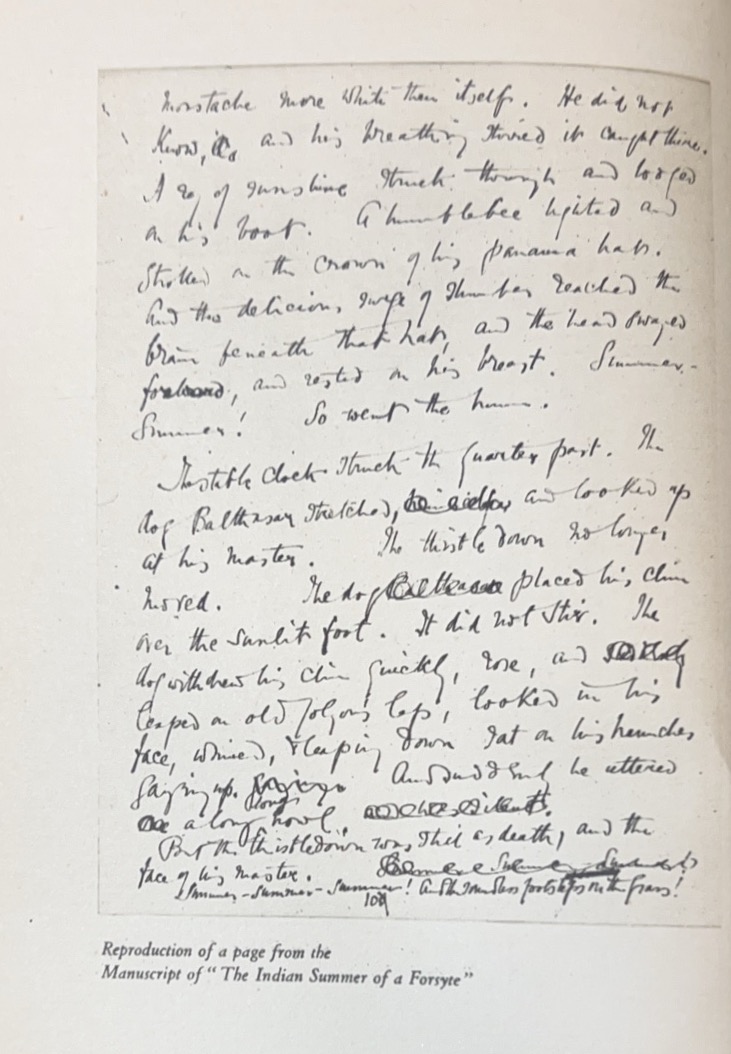 moustache more white than itself. He did not
know, and his breathing stirred it caught there.
A ray of sunshine struck through and lodged
on his boot. A humblebee lighted and
strolled on the crown of his panama hat.
And the delicious surge of slumber reached the
brain beneath that hat, and the head swayed
forward, and rested on his breast. Summer-
Summer! So went the hum.
The stable clock struck the quarter past. The
dog Balthasar stretched, and looked up
at his master. The thistledown no longer
moved. The dog placed his chin
over the sunlit foot. It did not stir. The
dog withdrew his chin quickly, rose, and
leaped on old Jolyon's lap, looked in his
face, whined, & leaping down sat on his haunches
gazing up. And suddenly he uttered
a long long howl.
But the thistledown was still as death, and the
face of his master.
Summer - Summer - Summer! And the soundless footsteps on the grass!
109
Reproduction of a page from the
Manuscript of "The Indian Summer of a Forsyte"